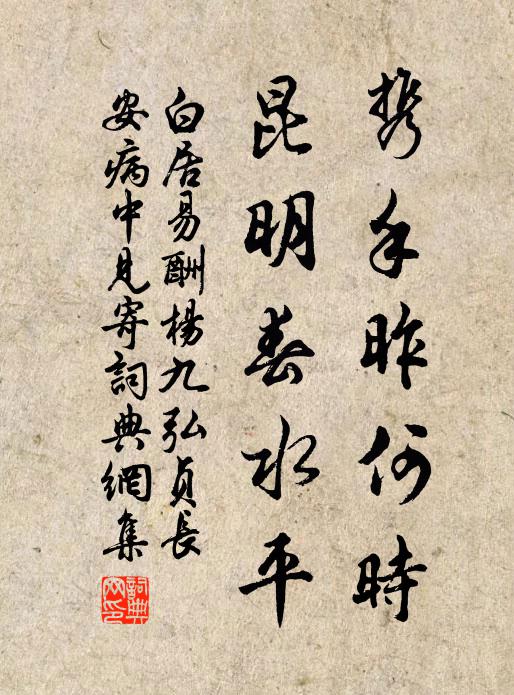 携手昨何時
昆明春水平
白居易酬楊九弘貞長
安病中見寄詞典網集
詞典
網印